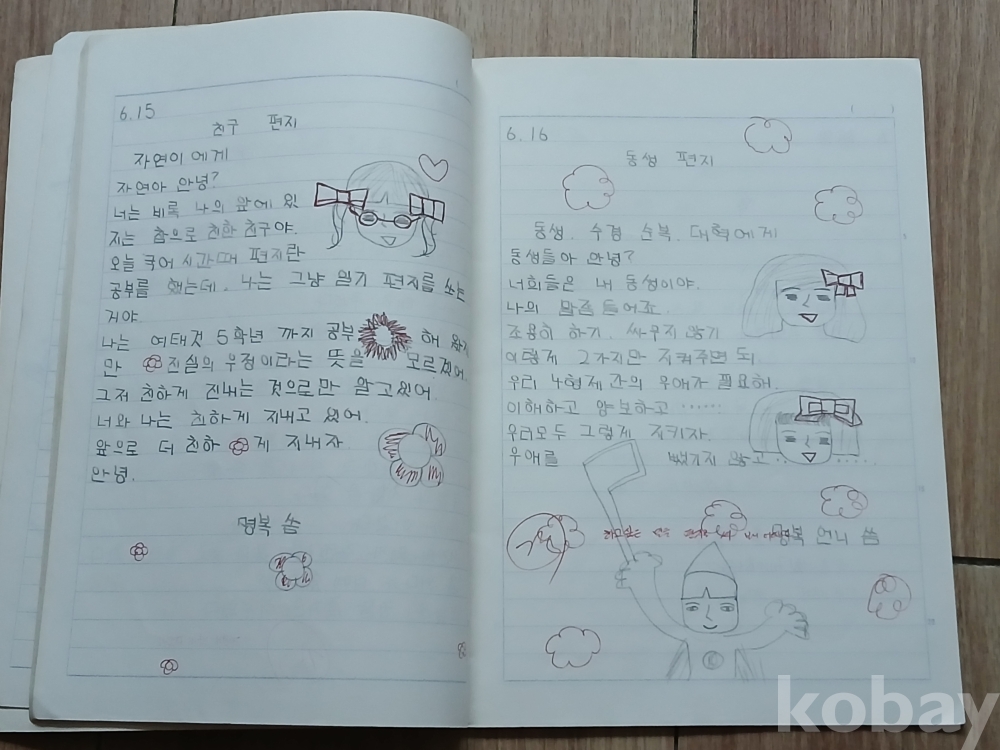 6.15
친구 편지
자연이에게
자연아 안녕?
너는 비록 나의 앞에 있
지는 참으로 친한 친구야.
오늘 국어 시간때 편지란
공부를 했는데. 나는 그냥 일기 편지를 쓰는
거야.
나는 여태껏 5학년 까지 공부 해 왔지
만 진실의 우정이라는 뜻을 모르겠어.
그저 친하게 지내는 것으로만 알고있어.
너와 나는 친하게 지내고 있어.
앞으로 더 친하게 지내자
안녕.
명복 씀
6.16
동생 편지
동생. 수경 순복. 대혁에게
동생들아 안녕?
너희들은 내 동생이야.
나의 말을 들어죠.
조용히 하기. 싸우지 않기
이렇게 2가지만 지켜주면 되.
우리 4형제 간의 우애가 필요해.
이해하고 양보하고 ……
우리모두 그렇게 지키자.
우애를 뺐기지 않고 ……
명복 언니 씀
kobay